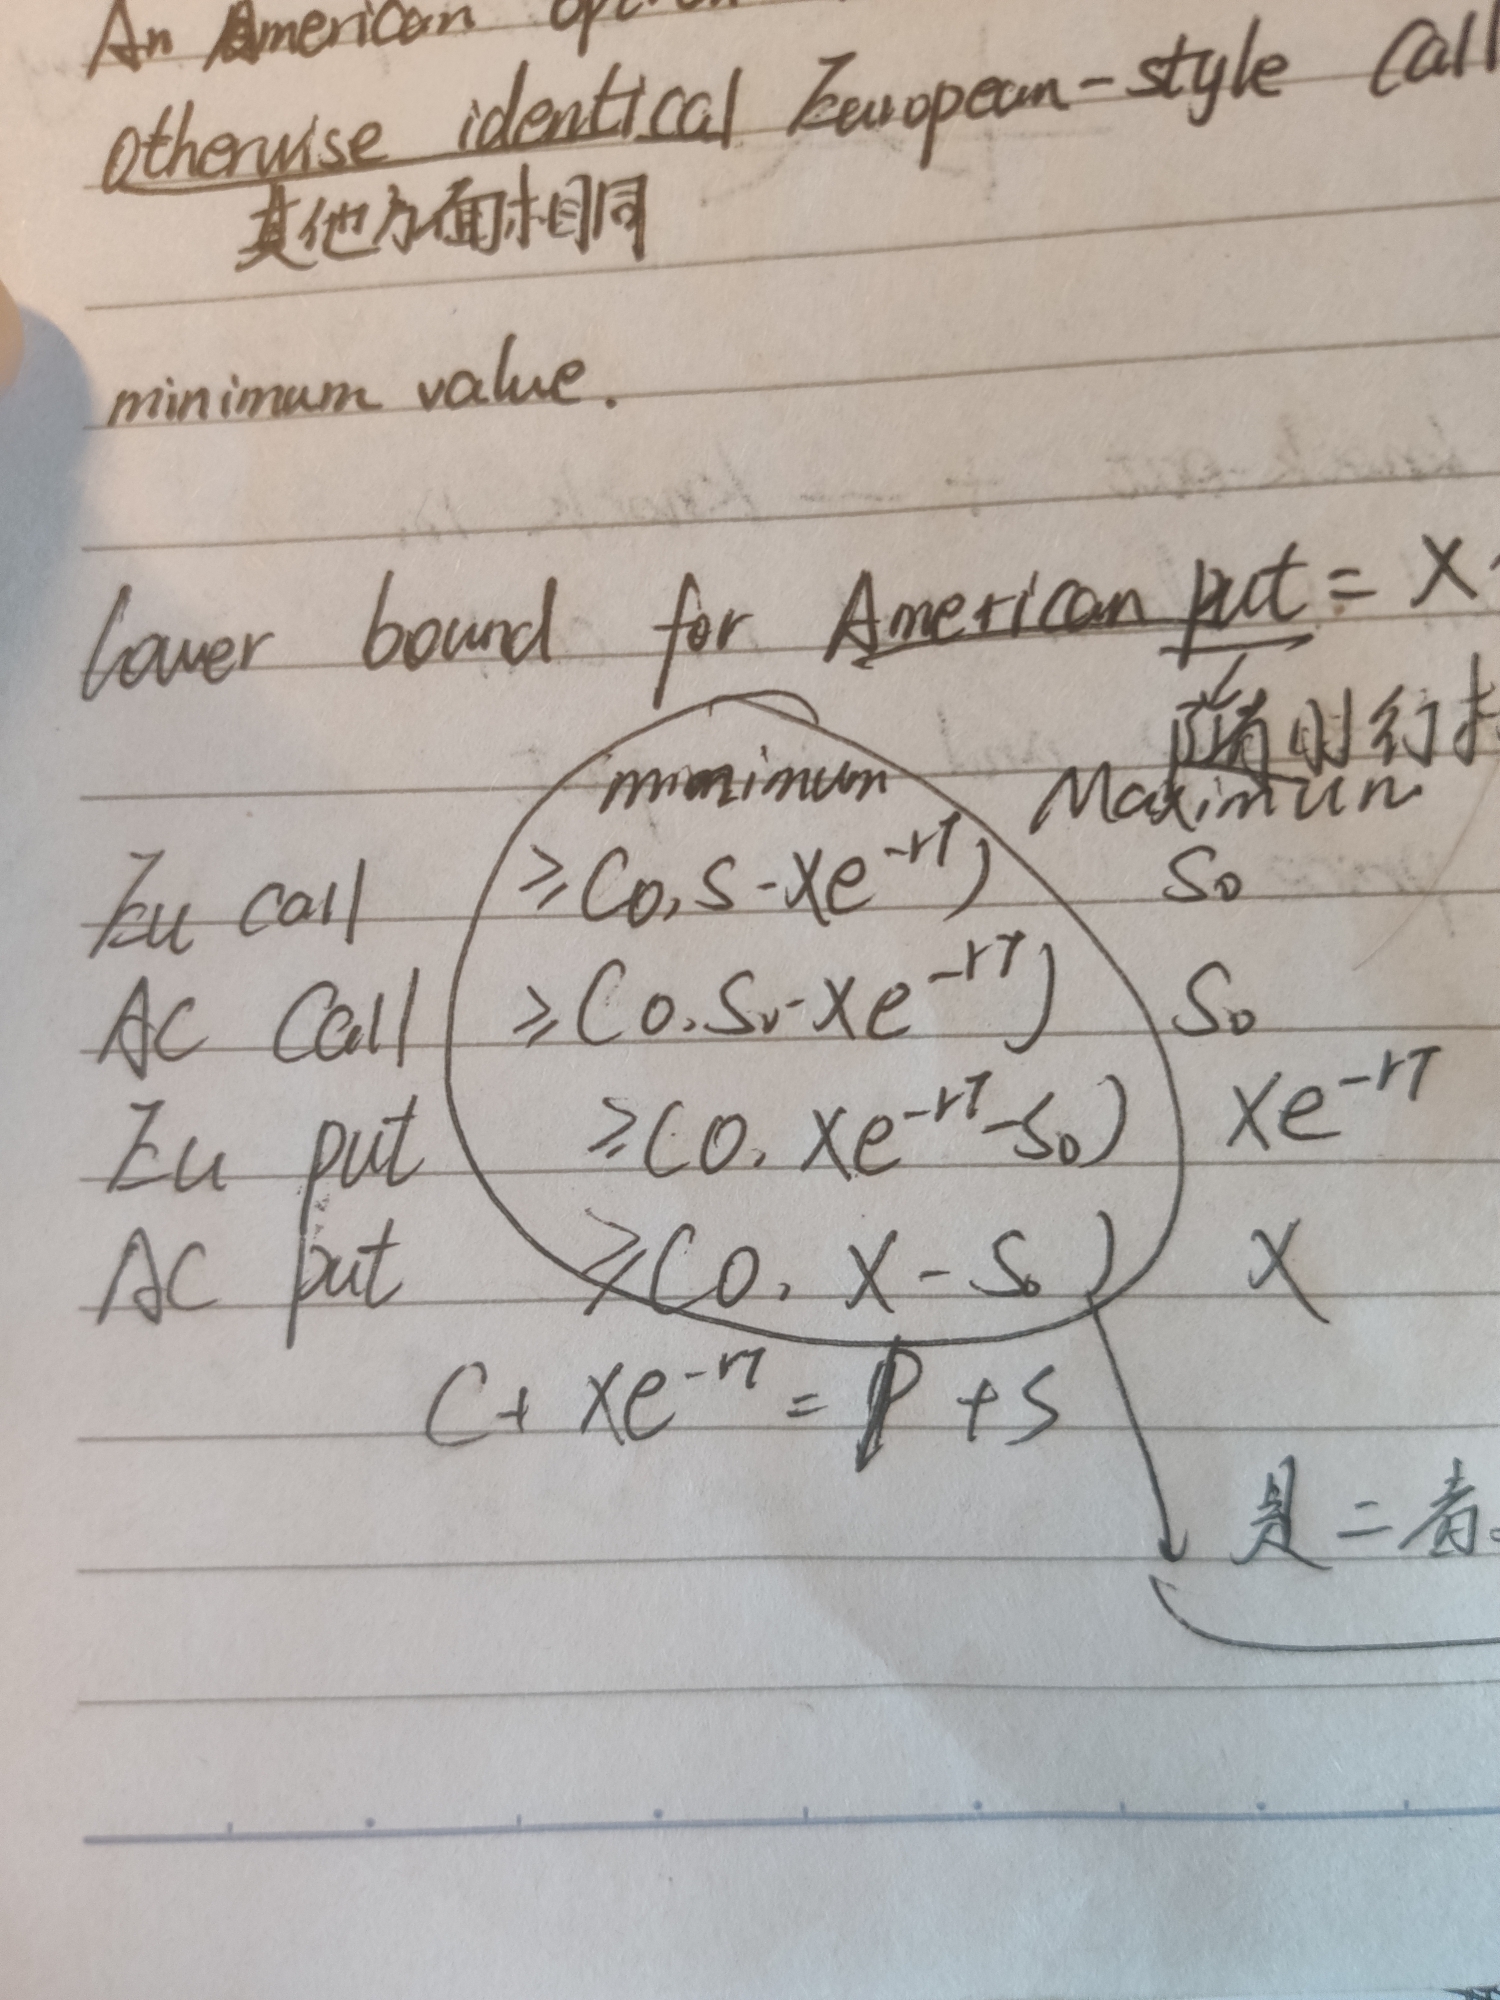 An American option
otherwise identical European-style call
其他方面相同
minimum value.
lower bound for American put = X
随时行
minimum Maximum
Eu call ≥(0, S - Xe^-rT) S₀
AC Call ≥(0, S₀ - Xe^-rT) S₀
Eu put ≥(0, Xe^-rT - S₀) Xe^-rT
AC put ≥(0, X - S₀) X
C + Xe^-rT = P + S
是二者